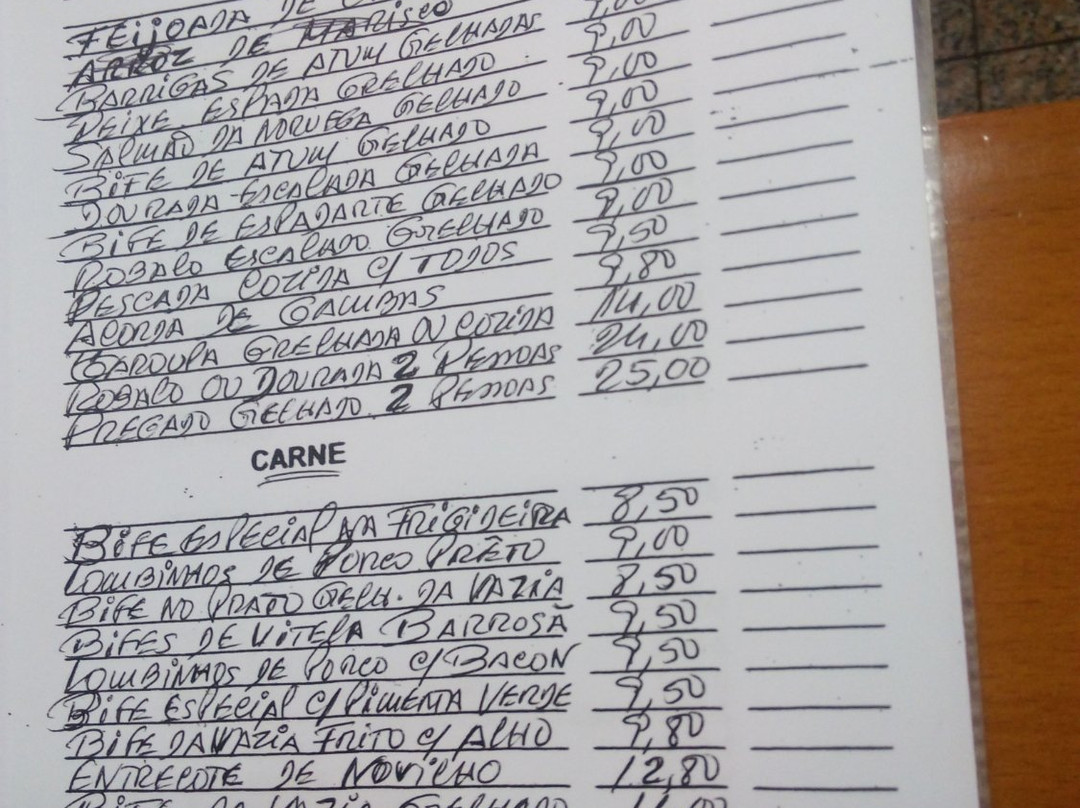 FEIJOADA DE
ARROZ DE MARISCO
BARRIGAS DE ATUM GELHADAS 9,00
PEIXE ESPADA GRELHADO 9,00
SALMÃO DA NORUEGA GELHADO 9,00
BIFE DE ATUM GELHADO 9,00
DOURADA ESCALADA GELHADA 9,00
BIFE DE ESPADARTE GRELHADO 9,00
ROBALO ESCALADO GRELHADO 9,00
PESCADA COZIDA C/ TODOS 9,50
AÇORDA DE GAMBAS 9,80
GAROUPA GRELHADA OU COZIDA 14,00
ROBALO OU DOURADA 2 PESSOAS 24,00
PREGADO GELHADO 2 PESSOAS 25,00
CARNE
BIFE ESPECIAL NA FRIGIDEIRA 8,50
LOMBINHOS DE PORCO PRETO 9,00
BIFE NO PRATO GRELH. DA VAZIA 8,50
BIFES DE VITELA BARROSÃ 9,50
LOMBINHOS DE PORCO C/ BACON 9,50
BIFE ESPECIAL C/ PIMENTA VERDE 9,50
BIFE DA VAZIA FRITO C/ ALHO 9,80
ENTRECOTE DE NOVILHO 12,80